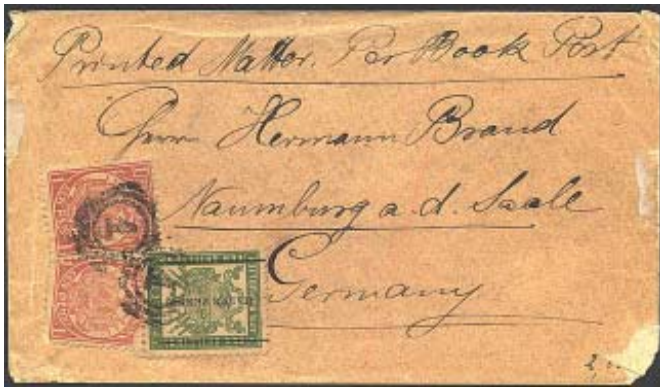 Printed Matter. Per Book Post
Herrn Hermann Brand
Naumburg a. d. Saale
Germany